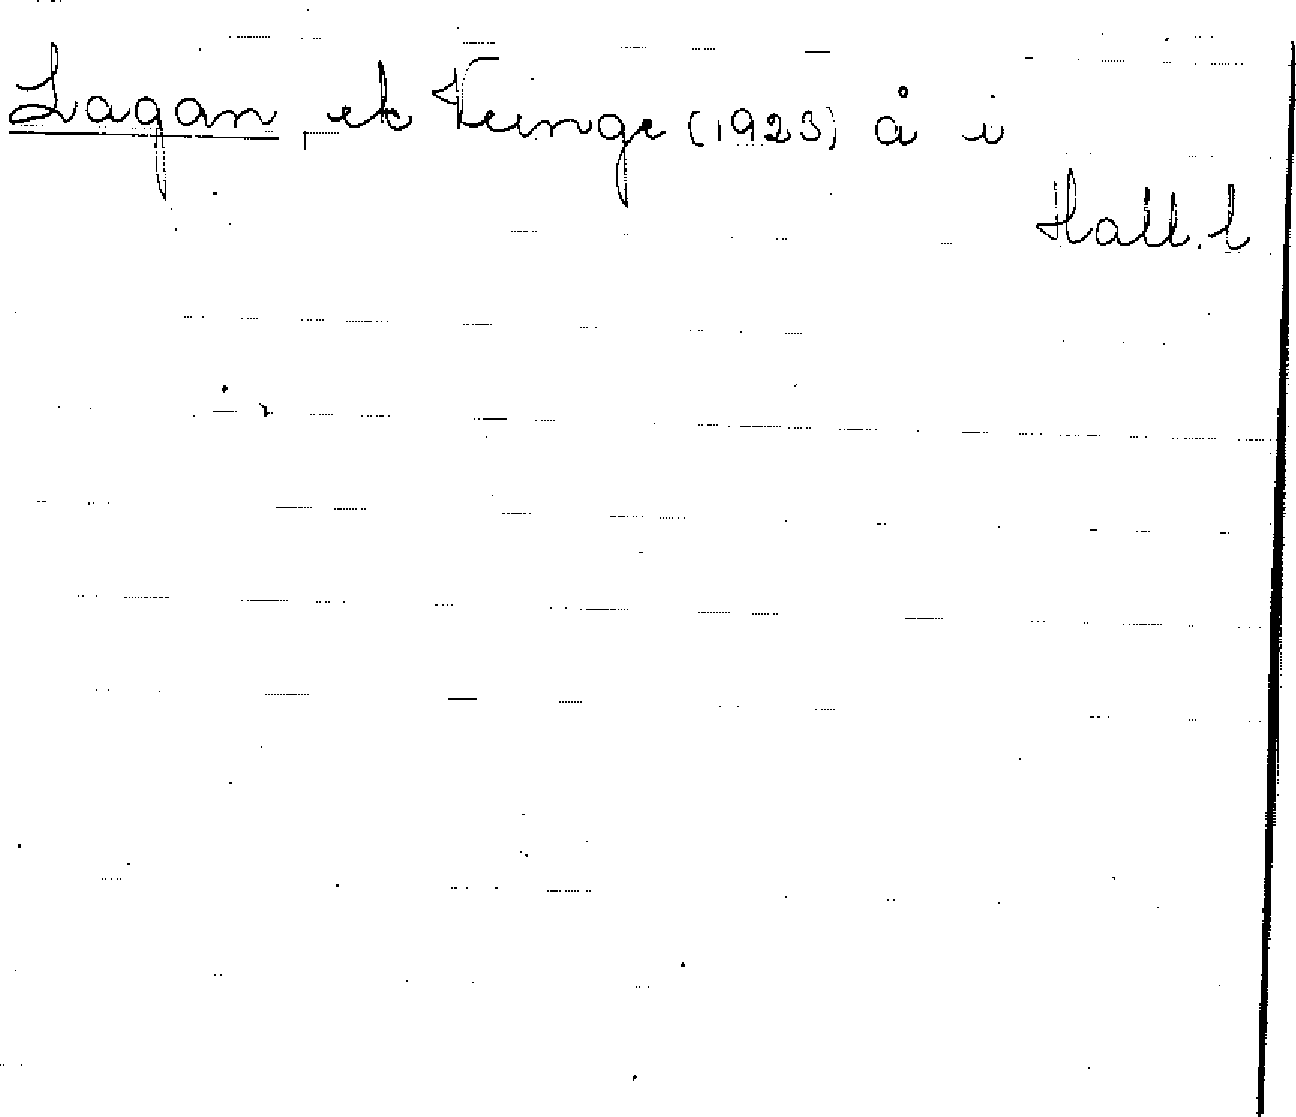 Lagan, ek Veinge (1923) å i
Hall. l